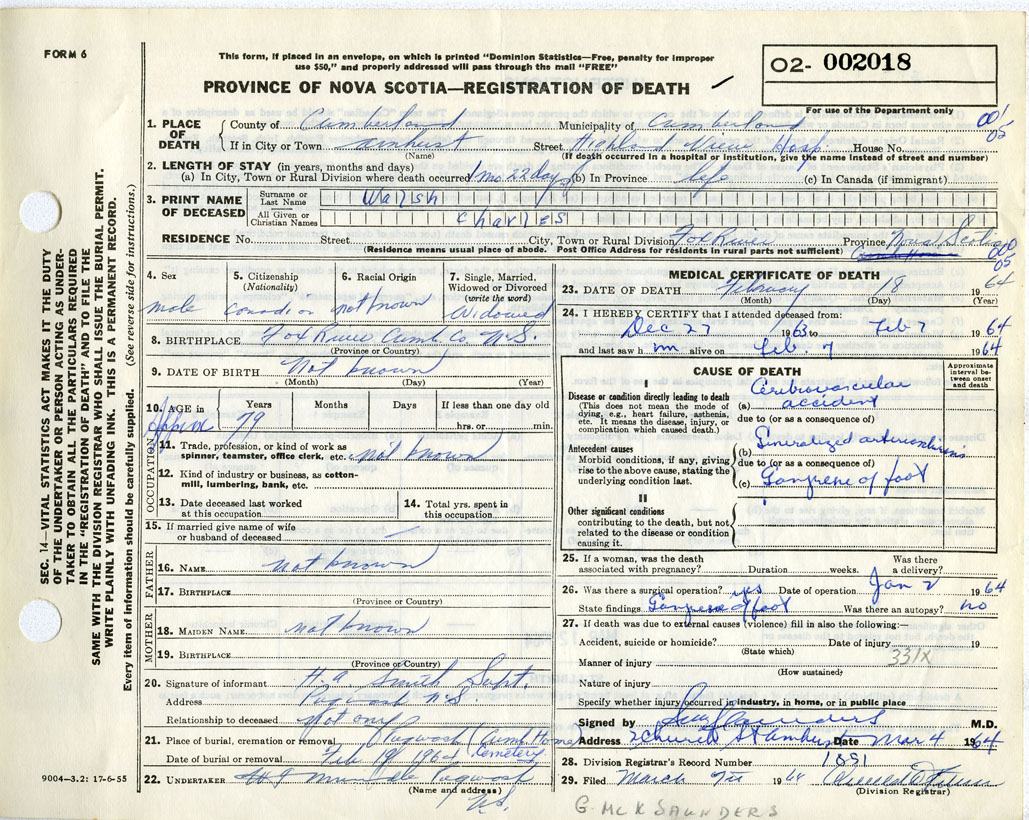 FORM 6
This form, if placed in an envelope, on which is printed "Dominion Statistics—Free, penalty for improper
use $50," and properly addressed will pass through the mail "FREE"
PROVINCE OF NOVA SCOTIA—REGISTRATION OF DEATH
02- 002018
For use of the Department only
SEC. 14—VITAL STATISTICS ACT MAKES IT THE DUTY
OF THE UNDERTAKER OR PERSON ACTING AS UNDER-
TAKER TO OBTAIN ALL THE PARTICULARS REQUIRED
IN THE "REGISTRATION OF DEATH" AND TO FILE THE
SAME WITH THE DIVISION REGISTRAR WHO SHALL ISSUE THE BURIAL PERMIT.
WRITE PLAINLY WITH UNFADING INK. THIS IS A PERMANENT RECORD.
Every item of Information should be carefully supplied. (See reverse side for instructions.)
1. PLACE OF DEATH County of Cumberland Municipality of Cumberland 001
If in City or Town Amherst Street Highland View Hosp House No. 05
(Name) (If death occurred in a hospital or institution, give the name instead of street and number)
2. LENGTH OF STAY (in years, months and days)
(a) In City, Town or Rural Division where death occurred 1 mo 22 days (b) In Province life (c) In Canada (if immigrant)
3. PRINT NAME OF DECEASED Surname or Last Name Walsh
All Given or Christian Names Charles
RESIDENCE No. Street City, Town or Rural Division Fox River Province Nova Scotia
(Residence means usual place of abode. Post Office Address for residents in rural parts not sufficient) 000
05
4. Sex 5. Citizenship (Nationality) 6. Racial Origin 7. Single, Married, Widowed or Divorced (write the word)
male Canadian not known Widowed
8. BIRTHPLACE Fox River Cumb. Co. N.S.
(Province or Country)
9. DATE OF BIRTH Not known
(Month) (Day) (Year)
10. AGE in Years Months Days If less than one day old
Approx 79 hrs. or min.
OCCUPATION
11. Trade, profession, or kind of work as
spinner, teamster, office clerk, etc. not known
12. Kind of industry or business, as cotton-
mill, lumbering, bank, etc.
13. Date deceased last worked at this occupation 14. Total yrs. spent in this occupation
15. If married give name of wife
or husband of deceased
FATHER
16. NAME not known
17. BIRTHPLACE
(Province or Country)
MOTHER
18. MAIDEN NAME not known
19. BIRTHPLACE
(Province or Country)
20. Signature of informant H.A. Smith Supt.
Address Pugwash N.S.
Relationship to deceased Not any
21. Place of burial, cremation or removal Pugwash (Cumb Home Cemetery)
Date of burial or removal Feb 19 1964
22. UNDERTAKER Pugwash
(Name and address) N.S.
9004—3.2: 17-6-55
MEDICAL CERTIFICATE OF DEATH
23. DATE OF DEATH February 18 1964
(Month) (Day) (Year)
24. I HEREBY CERTIFY that I attended deceased from:
Dec 27 1963 to Feb 7 1964
and last saw him alive on Feb. 7 1964
CAUSE OF DEATH
Approximate interval between onset and death
I
Disease or condition directly leading to death
(This does not mean the mode of
dying, e.g., heart failure, asthenia,
etc. It means the disease, injury, or
complication which caused death.)
(a) Cerebrovascular accident
due to (or as a consequence of)
Antecedent causes
Morbid conditions, if any, giving
rise to the above cause, stating the
underlying condition last.
(b) Generalized arteriosclerosis
due to (or as a consequence of)
(c) Gangrene of foot
II
Other significant conditions
contributing to the death, but not
related to the disease or condition
causing it.
25. If a woman, was the death associated with pregnancy? Duration weeks. Was there a delivery?
26. Was there a surgical operation? yes Date of operation Jan 2 1964
State findings Gangrene of foot Was there an autopsy? no
27. If death was due to external causes (violence) fill in also the following:—
Accident, suicide or homicide? Date of injury 19
(State which) 331X
Manner of injury
(How sustained)
Nature of injury
Specify whether injury occurred in industry, in home, or in public place
Signed by M.D.
Address Church St Amherst Date Mar 4 1964
28. Division Registrar's Record Number 1891
29. Filed March 1964
(Division Registrar)
G. McK SAUNDERS